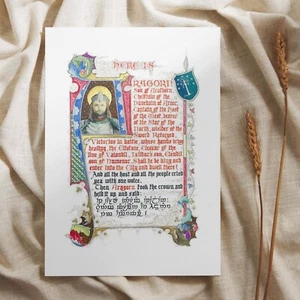 HERE IS
ARAGORN
Son of Arathorn,
Chieftain of the
Dunedain of Arnor,
Captain of the Host
of the West, bearer
of the Star of the
North, wielder of the
Sword Reforged,
Victorious in battle, whose hands bring
healing, the Elfstone, Elessar of the
line of Valandil, Isildur's son, Elendil's
son of Numenor. Shall he be king and
enter into the City and dwell there?
And all the host and all the people cried
yea with one voice.
Then Aragorn took the crown and
held it up and said: